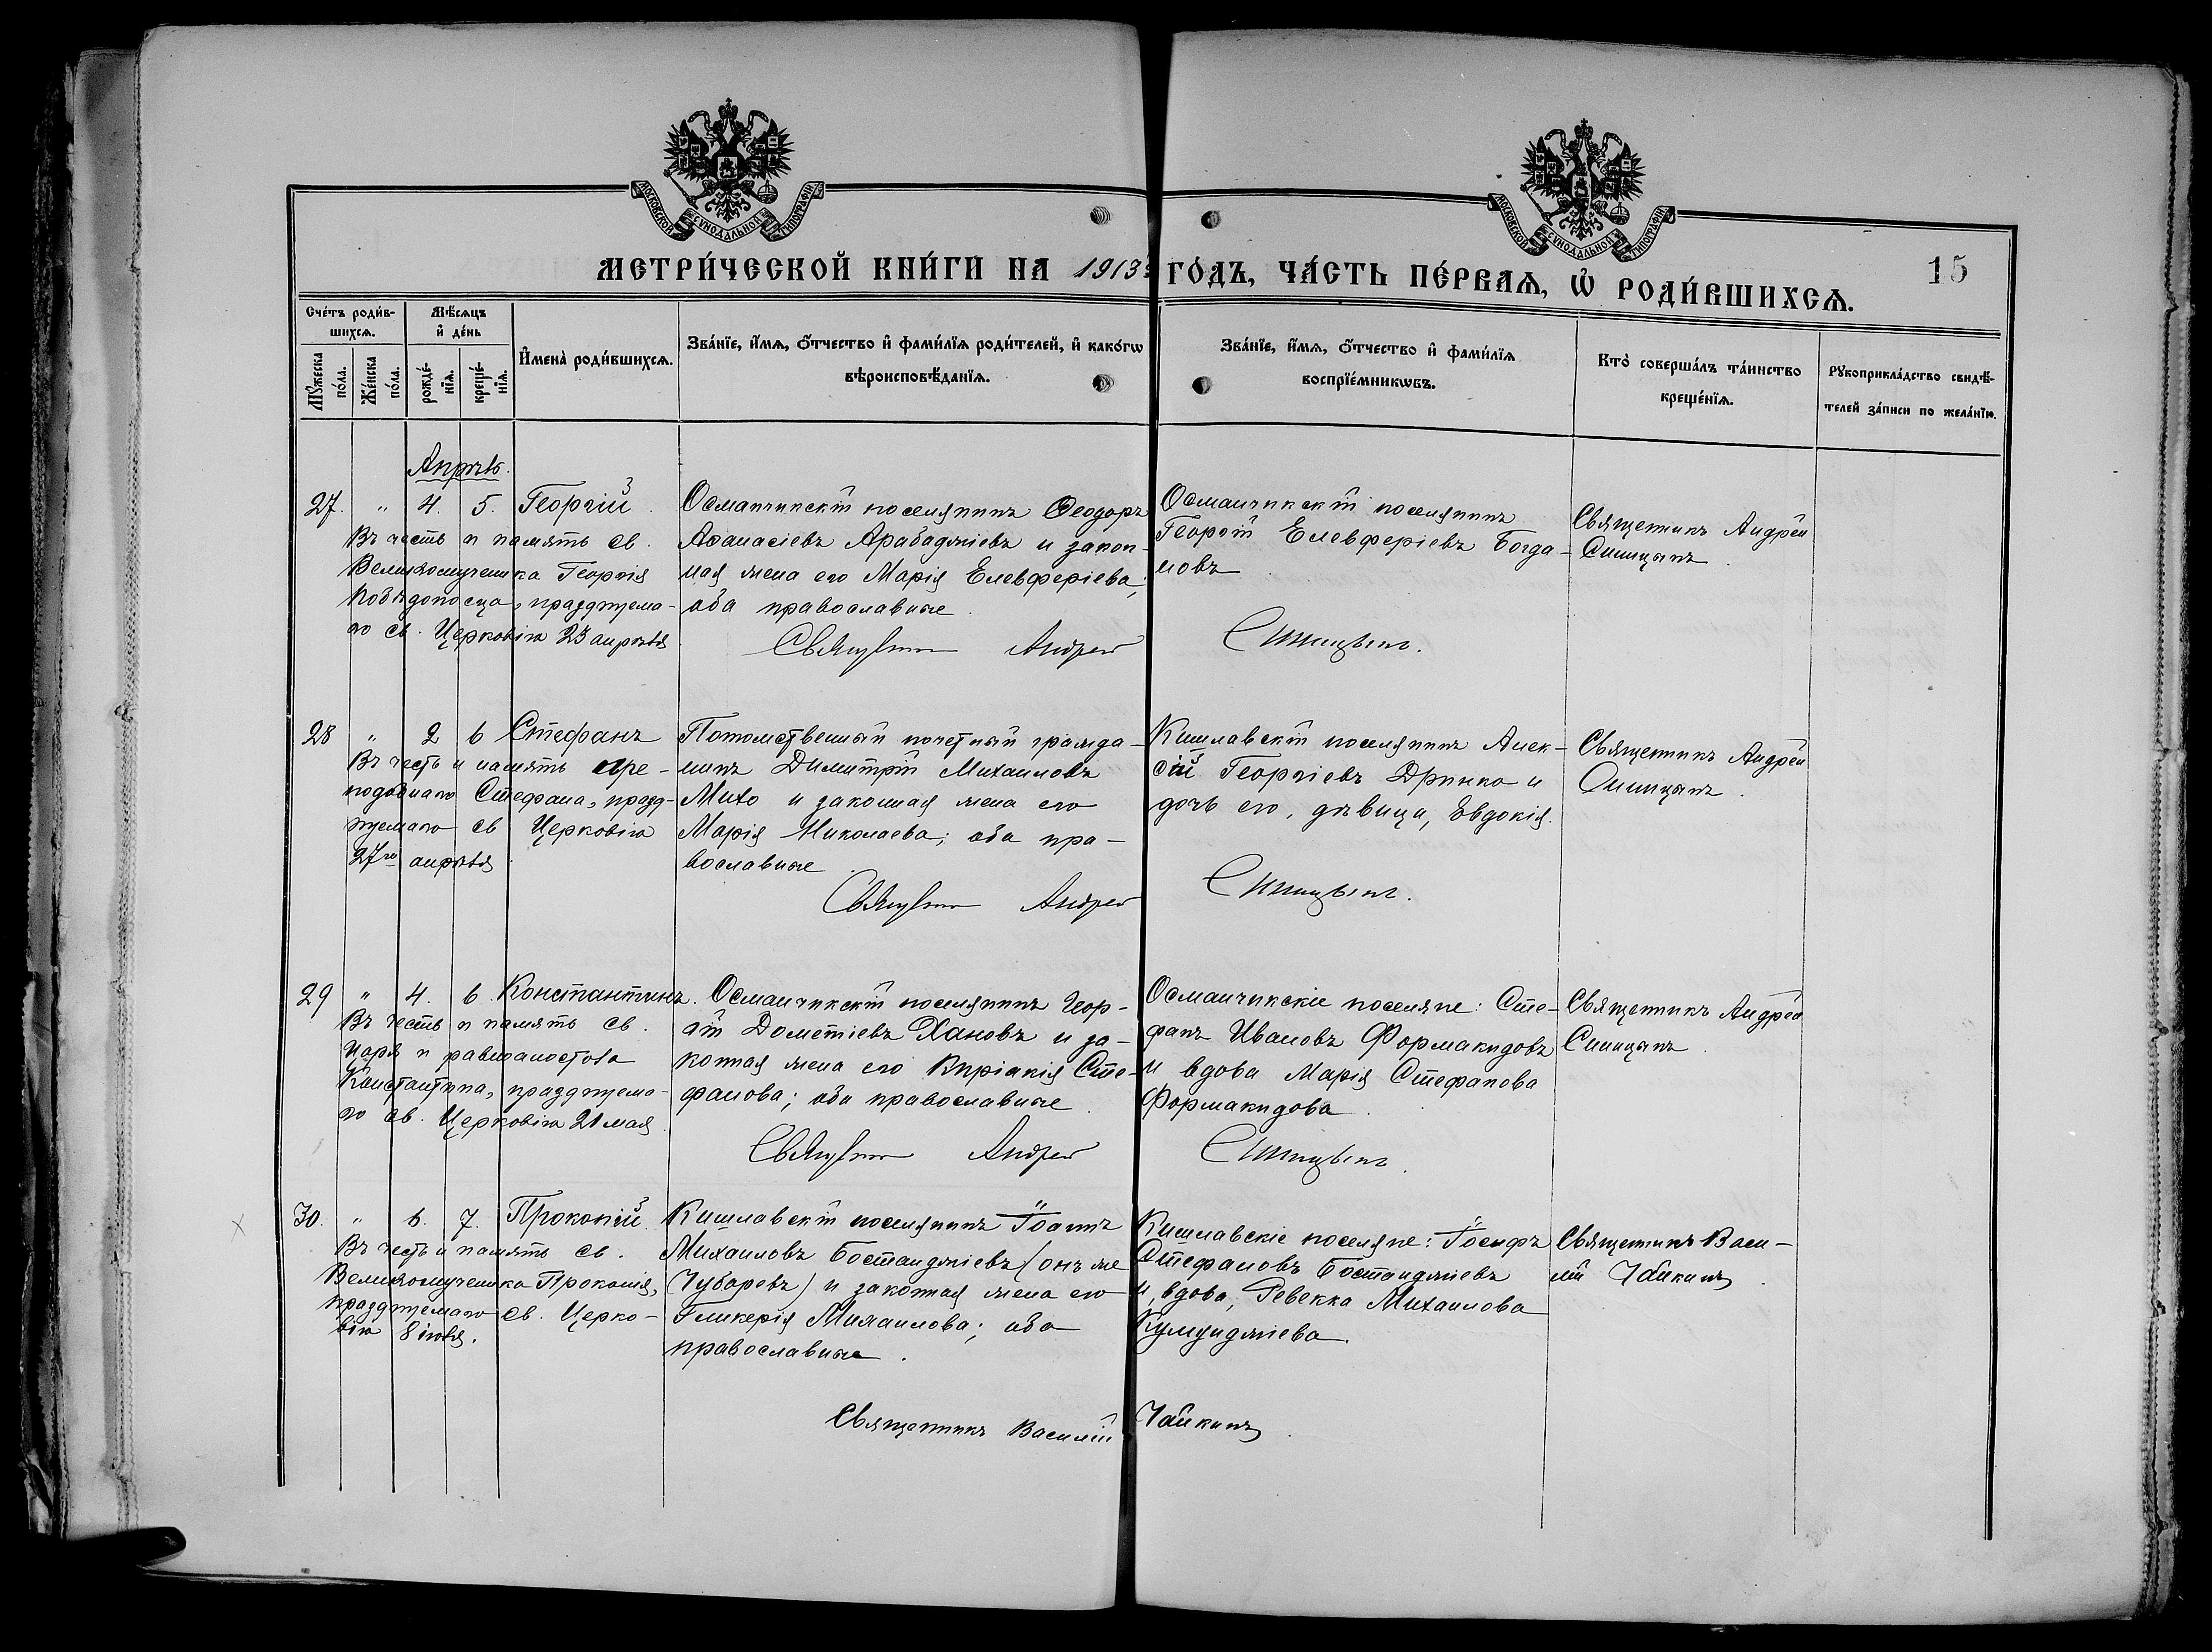 МОСКОВСКОЙ СѴНОДАЛЬНОЙ ТИПОГРАФІИ
МОСКОВСКОЙ СѴНОДАЛЬНОЙ ТИПОГРАФІИ
МЕТРИ́ЧЕСКОЙ КНИ́ГИ НА 1913 ГО́ДЪ, ЧА́СТЬ ПЕ́РВАѦ, Ѡ҆ РОДИ́ВШИХСѦ.
15
Сче́тъ роди́в-
шихсѧ.
Мѣ́сѧцъ
и҆ де́нь
Мꙋ́жеска
по́ла.
Же́нска
по́ла.
рожде́-
нїѧ.
креще́-
нїѧ.
И҆мена̀ роди́вшихсѧ.
Зва́нїе, и҆́мѧ, ѻ҆́тчество и҆ фами́лїѧ роди́телей, и҆ како́гѡ
вѣроисповѣ́данїѧ.
Зва́нїе, и҆́мѧ, ѻ҆́тчество и҆ фами́лїѧ
воспрїе́мникѡвъ.
Кто̀ соверша́лъ та́инство
креще́нїѧ.
Рꙋкоприкла́дство свидѣ́-
телей за́писи по жела́нїю.
Апрѣль.
27. " 4. 5. Георгій
Въ честь и память св.
Великомученика Георгія
Побѣдоносца, празднуема-
го св. Церковію 23 апрѣля
Османчикскій поселянинъ Ѳеодоръ
Аѳанасіевъ Арабаджіевъ и закон-
ная жена его Марія Елевферіева;
оба православные.
Османчикскій поселянинъ
Георгій Елевферіевъ Богда-
новъ
Священникъ Андрей
Синицынъ.
Священникъ Андрей Синицынъ.
28 " 2 6 Стефанъ
Въ честь и память пре-
подобнаго Стефана, празд-
нуемаго св Церковію
27го апрѣля
Потомственный почетный гражда-
нинъ Димитрій Михаиловъ
Михо и законная жена его
Марія Николаева; оба пра-
вославные.
Кишлавскій поселянинъ Алек-
сій Георгіевъ Дринко и
дочь его, дѣвица, Евдокія.
Священникъ Андрей
Синицынъ.
Священникъ Андрей Синицынъ.
29 " 4. 6. Константинъ.
Въ честь и память св.
царя и равноапостола
Константина, празднуема-
го св. Церковію 21 мая.
Османчикскій поселянинъ Геор-
гій Дометіевъ Хановъ и за-
конная жена его Киріакія Сте-
фанова; оба православные.
Османчикскіе поселяне: Сте-
фанъ Ивановъ Формакидовъ
и вдова Марія Стефанова
Формакидова.
Священникъ Андрей
Синицынъ.
Священникъ Андрей Синицынъ.
30. " 6. 7. Прокопій.
Въ честь и память св.
Великомученика Прокопія,
празднуемаго св. Церко-
вію 8 іюля.
Кишлавскій поселянинъ Іоаннъ
Михаиловъ Бостанджіевъ (онъ же
Чубаревъ) и законная жена его
Гликерія Михаилова; оба
православные.
Кишлавскіе поселяне: Іосифъ
Стефановъ Бостанджіевъ
и, вдова, Ревекка Михаилова
Кумунджіева.
Священникъ Васи-
лій Чайкинъ.
Священникъ Василій Чайкинъ.